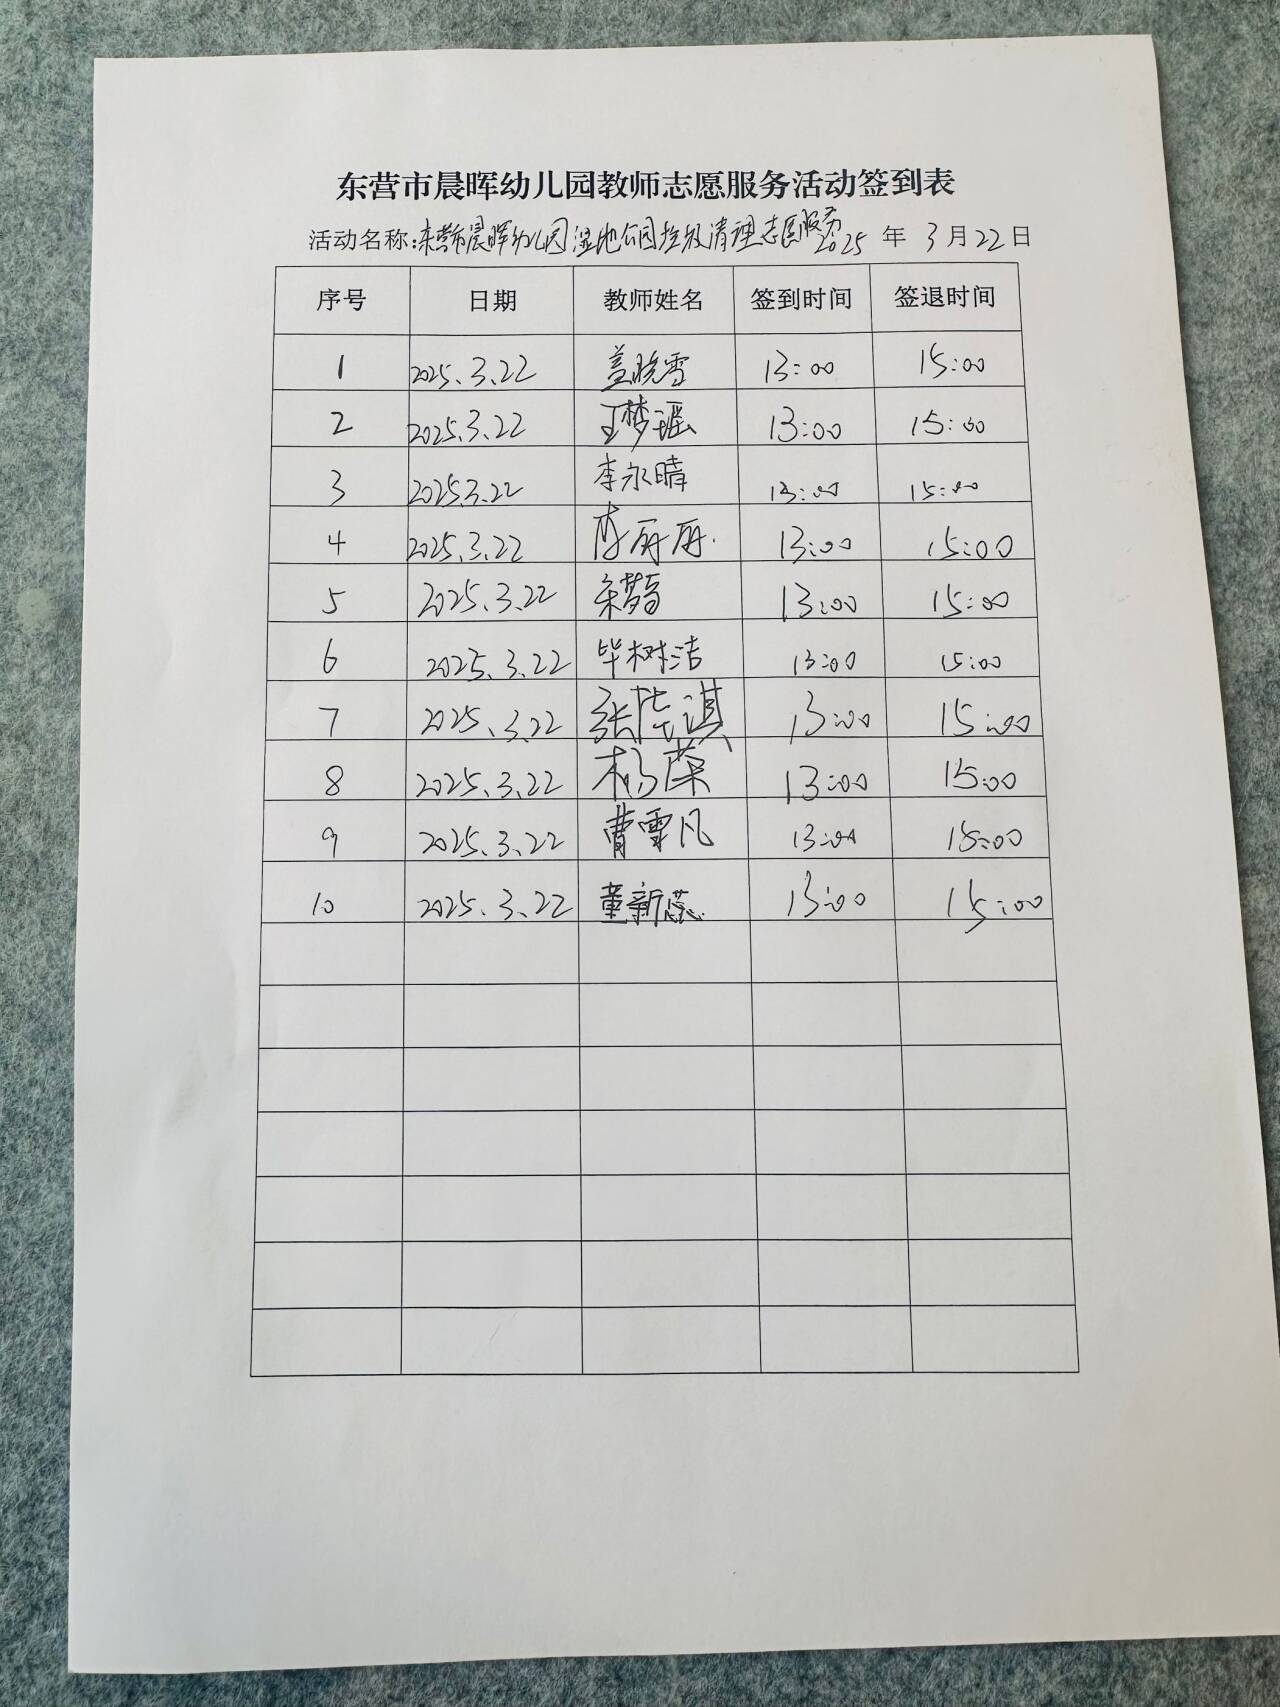 东营市晨晖幼儿园教师志愿服务活动签到表
活动名称:东营市晨晖幼儿园湿地公园垃圾清理志愿服务 2025 年 3 月 22 日
序号 日期 教师姓名 签到时间 签退时间
1 2025.3.22 盖晓雪 13:00 15:00
2 2025.3.22 王梦瑶 13:00 15:00
3 2025.3.22 李永晴 13:00 15:00
4 2025.3.22 13:00 15:00
5 2025.3.22 13:00 15:00
6 2025.3.22 毕树洁 13:00 15:00
7 2025.3.22 13:00 15:00
8 2025.3.22 杨荣 13:00 15:00
9 2025.3.22 曹雪凡 13:00 15:00
10 2025.3.22 董新蕊 13:00 15:00